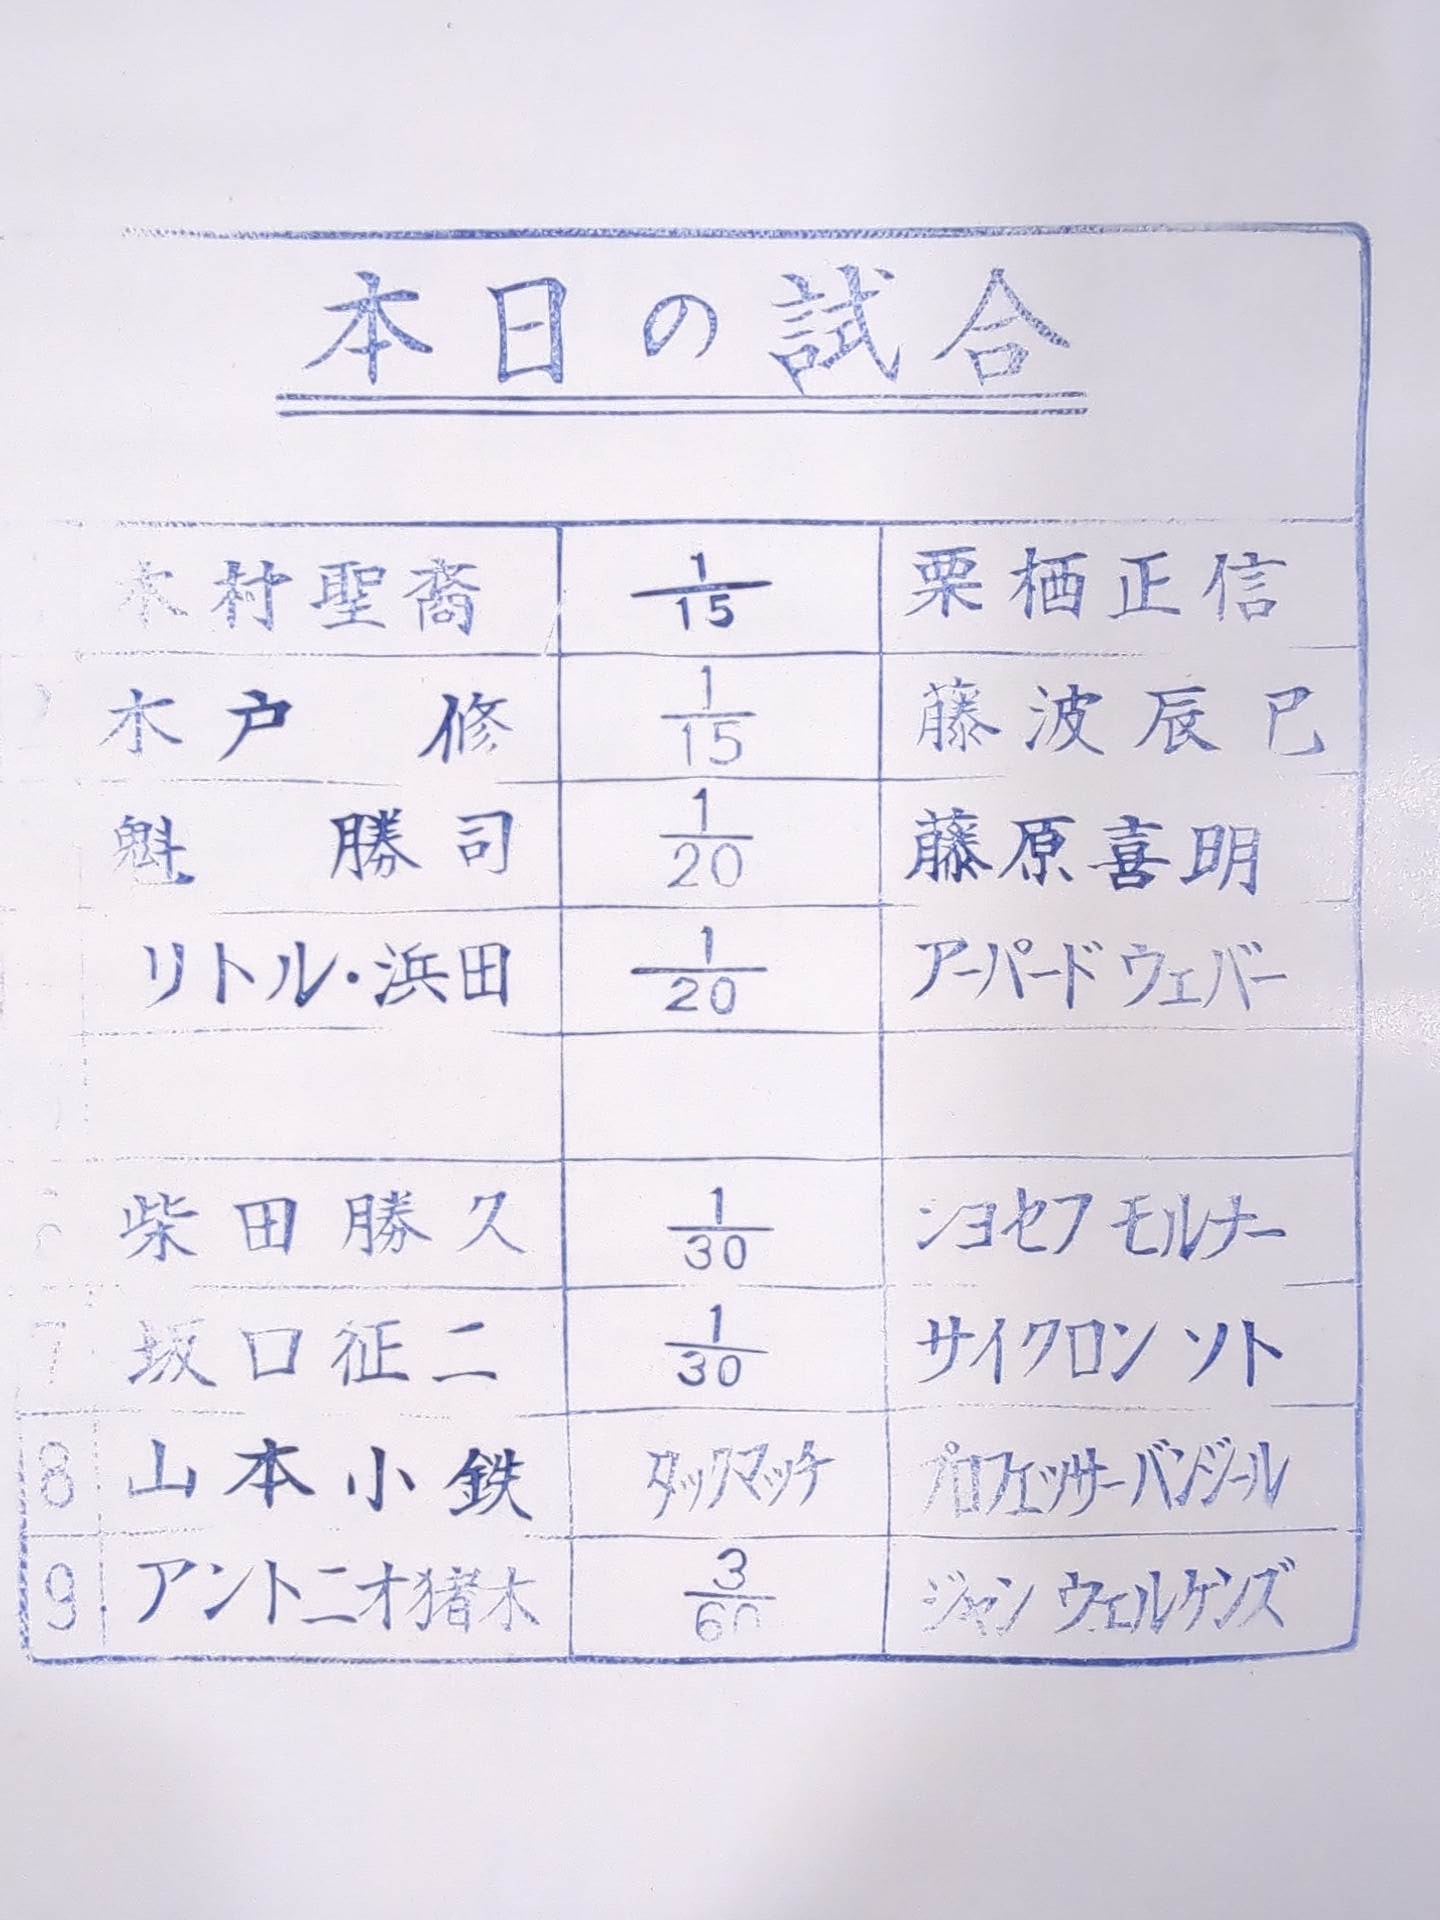 本日の試合
木村聖裔 1/15 栗栖正信
木戸 修 1/15 藤波辰巳
魁 勝司 1/20 藤原喜明
リトル・浜田 1/20 アーパード ウェバー
柴田勝久 1/30 ショセフ モルナー
7 坂口征二 1/30 サイクロン ソト
8 山本小鉄 タックマッチ プロフェッサーバンジール
9 アントニオ猪木 3/60 ジャン ウェルケンズ